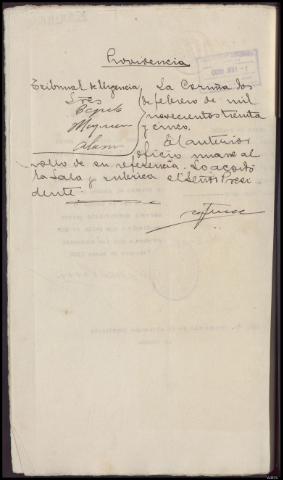 Providencia
Tribunal de Urgencia
Sres
La Coruña dos
de febrero de mil
novecientos treinta
y cinco.
El anterior
oficio unase al
rollo de su referencia. Lo acordó
la Sala y rubrica el Señor Presi-
dente.